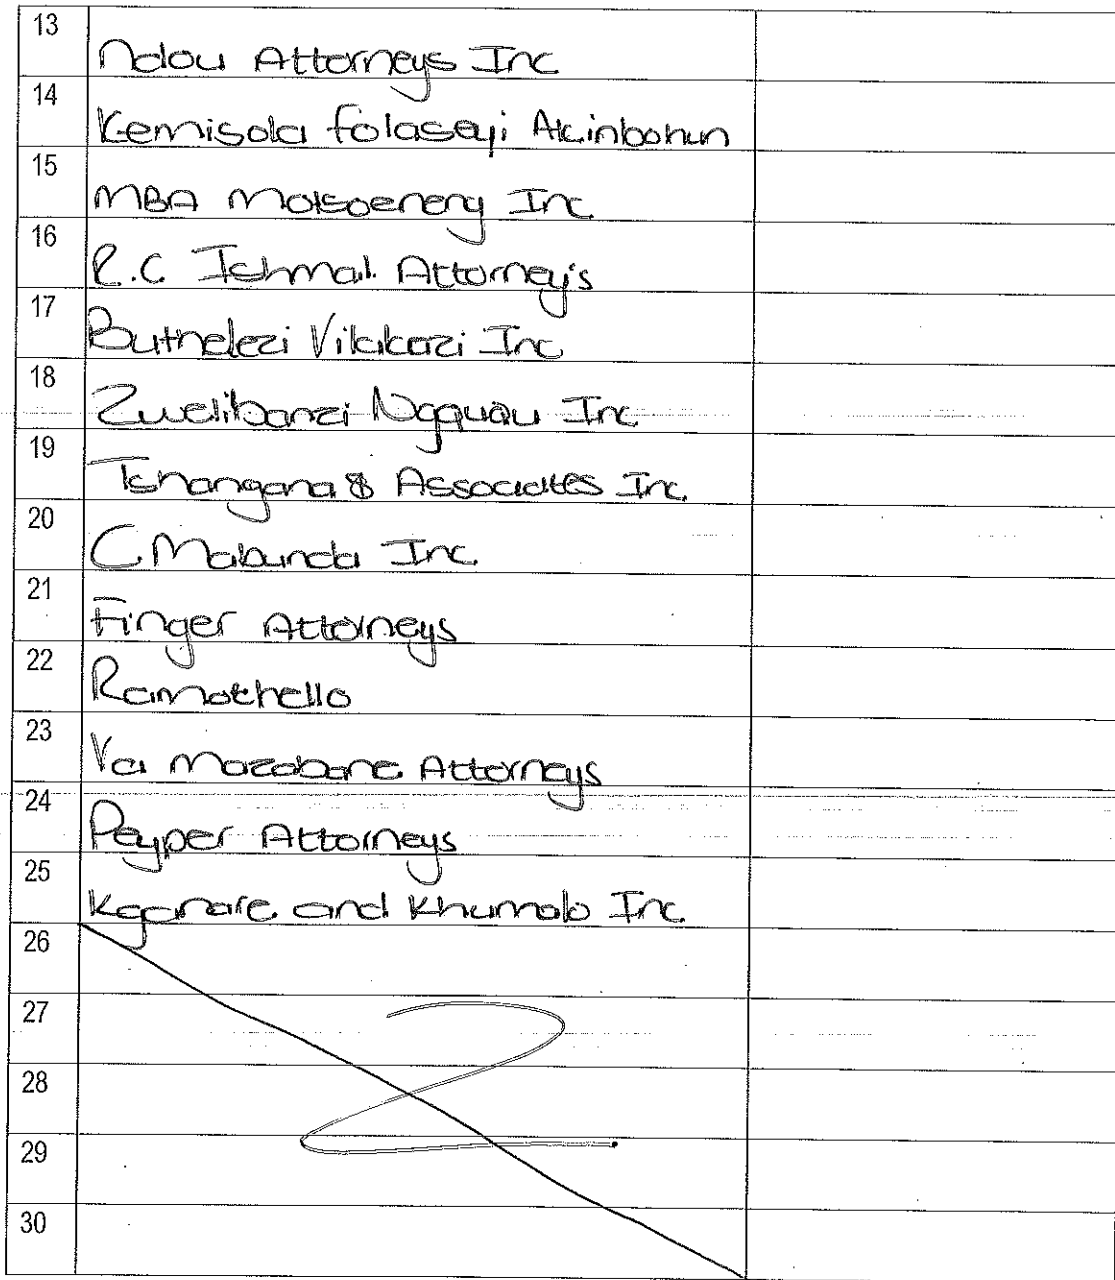 13
Ndou Attorneys Inc
14
Kemisola Folaseyi Akinbohun
15
MBA Molsoeneng Inc
16
R.C. Ishmail Attorney's
17
Buthelezi Vilakazi Inc
18
Zwelibanzi Inc
19
Tshangana & Associates Inc
20
C Mabunda Inc
21
Finger Attorneys
22
Ramothello
23
Va Mazabane Attorneys
24
Peyper Attorneys
25
Kganare and Khumalo Inc
26
27
28
29
30